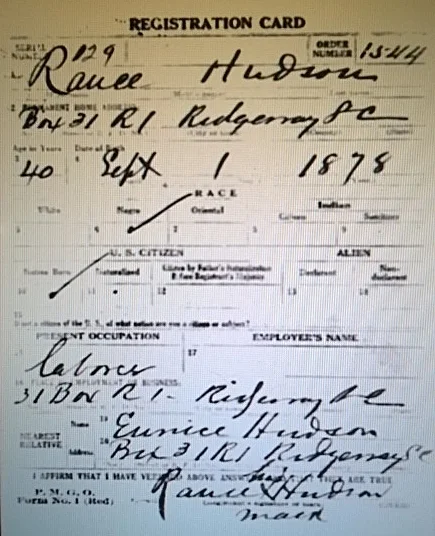 REGISTRATION CARD
SERIAL NUMBER 129 ORDER NUMBER 1544
1 Rance Hudson
2 PERMANENT HOME ADDRESS:
Box 31 R1 Ridgeway S C
Age in Years Date of Birth
3 40 4 Sept 1 1878
RACE
White Negro Oriental Indian
Citizen Noncitizen
5 6 7 8 9
U. S. CITIZEN ALIEN
Native Born Naturalized Citizen by Father's Naturalization Before Registrant's Majority Declarant Non-declarant
10 11 12 13 14
15
If not a citizen of the U. S., of what nation are you a citizen or subject?
PRESENT OCCUPATION EMPLOYER'S NAME
17
laborer
18 PLACE OF EMPLOYMENT OR BUSINESS:
31 Box R1 - Ridgeway S C
NEAREST RELATIVE Name 19 Eunice Hudson
Address 20 Box 31 R1 Ridgeway S C
I AFFIRM THAT I HAVE VERIFIED ABOVE ANSWERS THAT THEY ARE TRUE
P. M. G. O.
Form No. 1 (Red)
his
Rance Hudson
mark